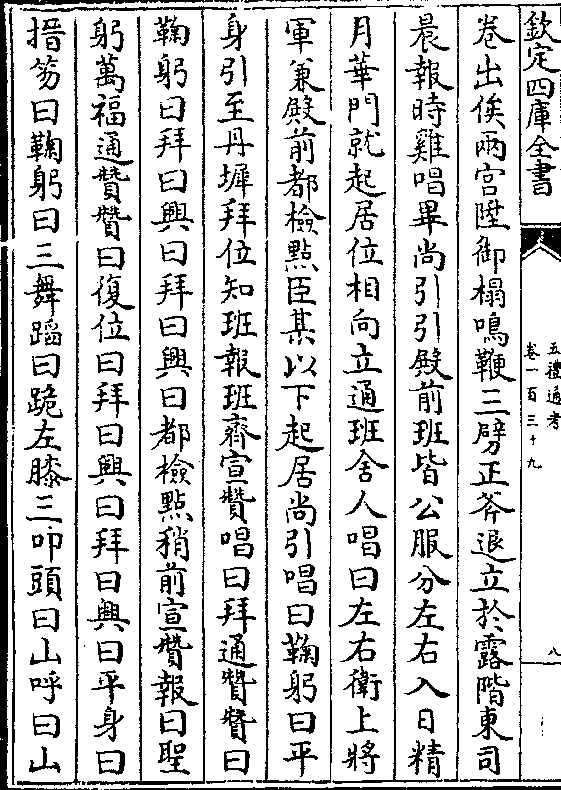 欽定四庫全書
五禮通考
卷一百三十九
八
卷出俟兩宫陞御榻鳴鞭三劈正斧退立於露階東司
晨報時雞唱畢尚引引殿前班皆公服分左右入日精
月華門就起居位相向立通班舍人唱曰左右衛上將
軍兼殿前都檢點臣某以下起居尚引唱曰鞠躬曰平
身引至丹墀拜位知班報班齊宣贊唱曰拜通贊贊曰
鞠躬曰拜曰興曰拜曰興曰都檢點稍前宣贊報曰聖
躬萬福通贊贊曰復位曰拜曰興曰拜曰興曰平身曰
搢笏曰鞠躬曰三舞蹈曰跪左膝三叩頭曰山呼曰山